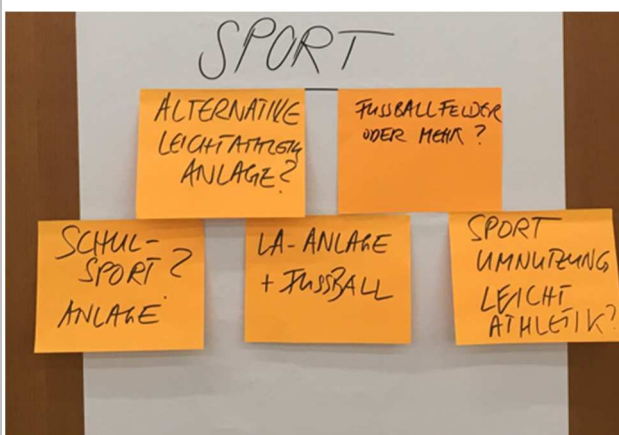 SPORT
ALTERNATIVE
LEICHTATHLETIK
ANLAGE?
FUSSBALLFELDER
ODER MEHR?
SCHUL-
SPORT?
ANLAGE
LA-ANLAGE
+ FUSSBALL
SPORT
UMNUTZUNG
LEICHT
ATHLETIK?